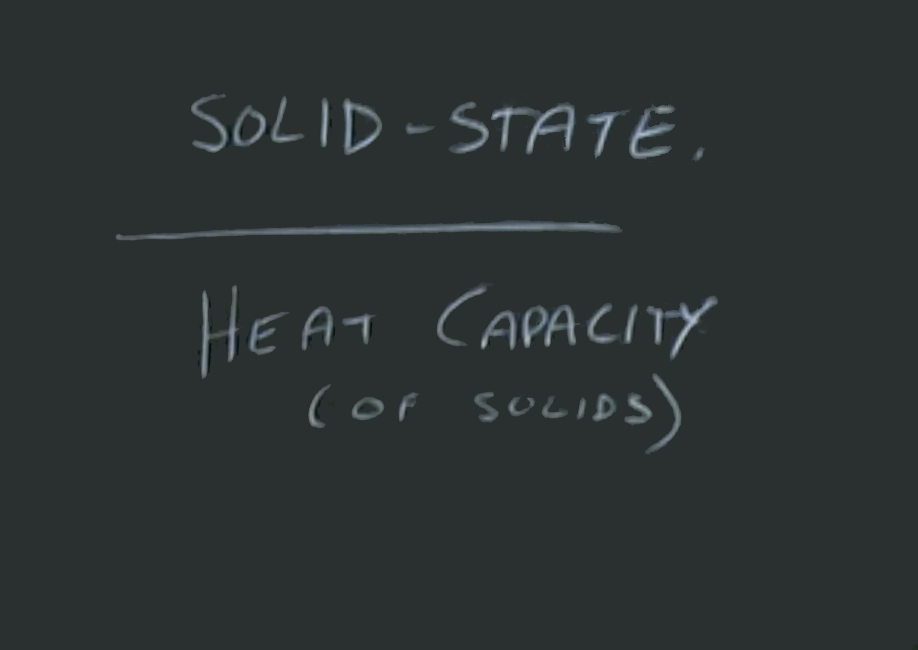 SOLID-STATE.
HEAT CAPACITY
(OF SOLIDS)